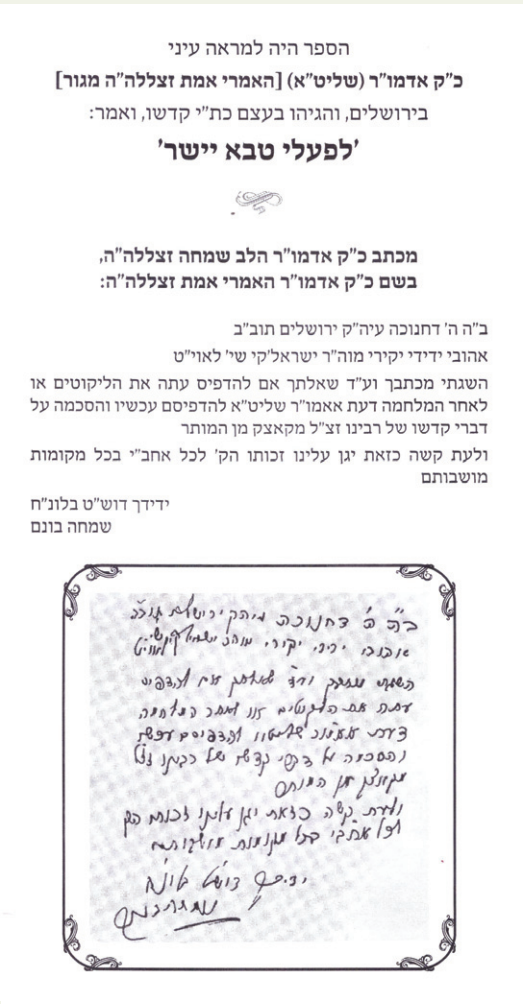 הספר היה למראה עיני
כ"ק אדמו"ר (שליט"א) [האמרי אמת זצללה"ה מגור]
בירושלים, והגיהו בעצם כת"י קדשו, ואמר:
'לפעלי טבא יישר'
מכתב כ"ק אדמו"ר הלב שמחה זצללה"ה,
בשם כ"ק אדמו"ר האמרי אמת זצללה"ה:
ב"ה ה' דחנוכה עיה"ק ירושלים תוב"ב
אהובי ידידי יקירי מוה"ר ישראל'קי שי' לאוי"ט
השגתי מכתבך וע"ד שאלתך אם להדפיס עתה את הליקוטים או
לאחר המלחמה דעת אאמו"ר שליט"א להדפיסם עכשיו והסכמה על
דברי קדשו של רבינו זצ"ל מקאצק מן המותר
ולעת קשה כזאת יגן עלינו זכותו הק' לכל אחב"י בכל מקומות
מושבותם
ידידך דוש"ט בלונ"ח
שמחה בונם
ב"ה ה' דחנוכה עיהק ירושלים תובב
אהובי ידידי יקירי מוהר ישראלקי שי' לאויט
השגתי מכתבך וע"ד שאלתך אם להדפיס
עתה את הליקוטים או לאחר המלחמה
דעת אאמור שליטא להדפיסם עכשיו
והסכמה על דברי קדשו של רבינו זצל
מקאצק מן המותר
ולעת קשה כזאת יגן עלינו זכותו הק
לכל אחבי בכל מקומות מושבותם
ידידך דושט בלונח
שמחה בונם